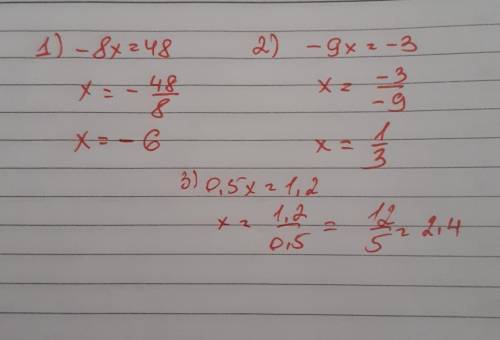 1) -8x=48
x = - 48/8
x = - 6
2) -9x = -3
x = -3/-9
x = 1/3
3) 0,5x = 1,2
x = 1,2/0,5 = 12/5 = 2,4